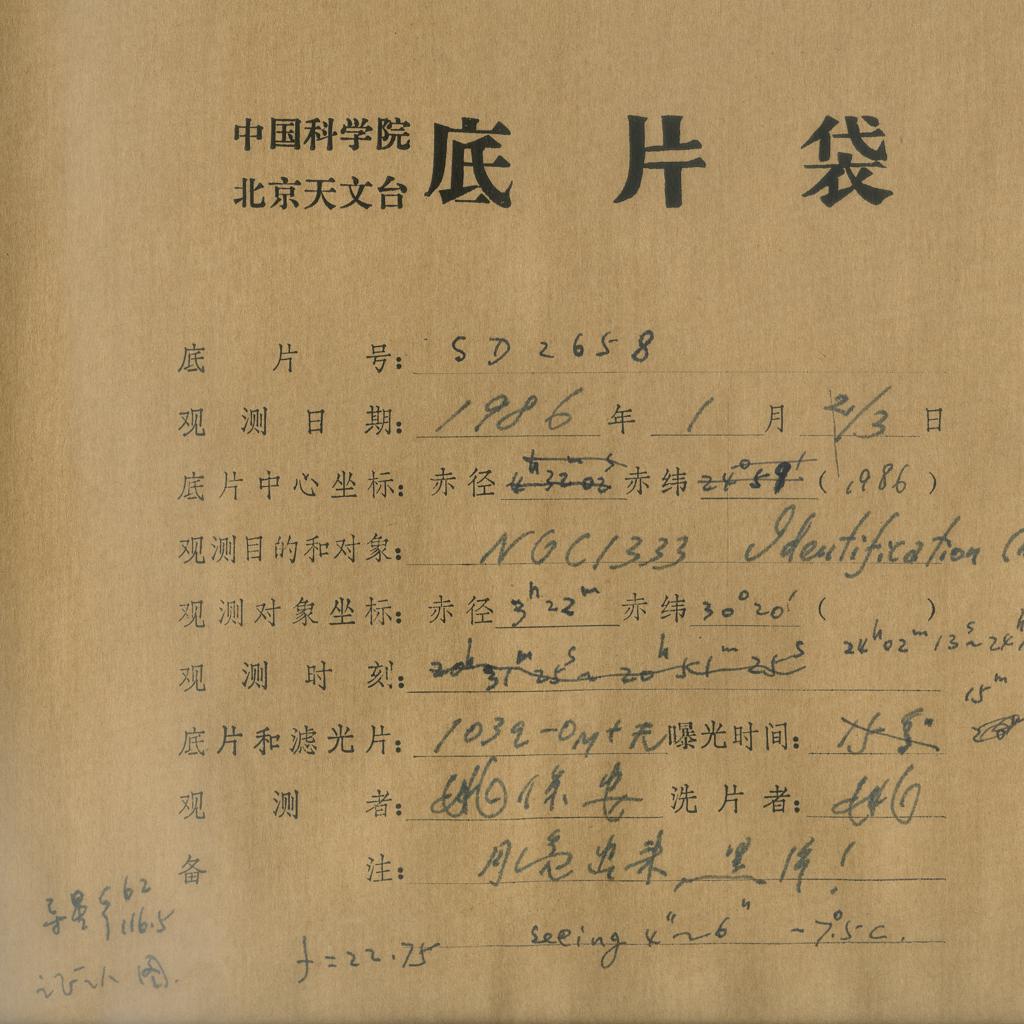 中国科学院
北京天文台
底片袋
底片号: SD2658
观测日期: 1986年 1月 2/3日
底片中心坐标: 赤径 4h32m02s 赤纬 24°59′ (1986)
观测目的和对象: NGC1333 Identifixation (
观测对象坐标: 赤径 3h22m 赤纬 30°20′ ( )
24h02m13s~24h
观测时刻: 20h31m25s~20h51m25s
15m
底片和滤光片: 103a-O 曝光时间:
观测者: 保安 洗片者:
备注: 月亮出来,
导星 62
116.5
seeing 4″~6″ -7°.5C.
f=22.75
证认图.